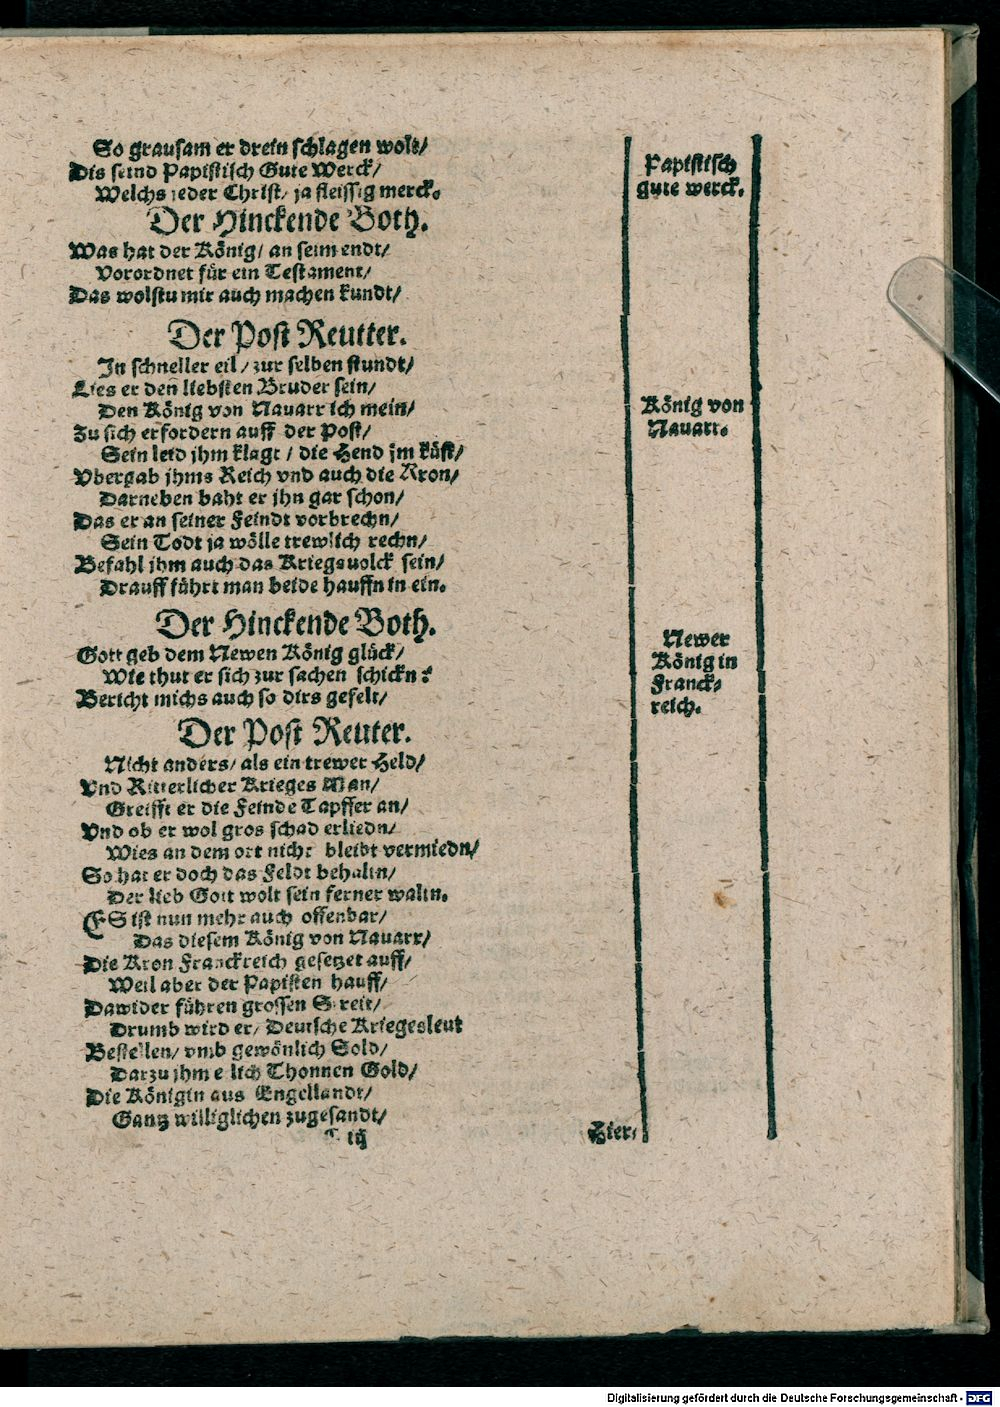 So grausam er drein schlagen wolt/
Dis seind Papistisch Gute Werck/
Welchs jeder Christ/ ja fleissig merck.
Papistisch
gute werck.
Der Hinckende Both.
Was hat der König/ an seim endt/
Vorordnet für ein Testament/
Das wolstu mir auch machen kundt/
Der Post Reutter.
In schneller eil/ zur selben stundt/
Lies er den̄ liebsten Bruder sein/
Den König von Nauarr ich mein/
König von
Nauarr.
Zu sich erfordern auff der Post/
Sein leid ihm klagt/ die Hend jm küst/
Vbergab jhms Reich vnd auch die Kron/
Darneben baht er jhn gar schon/
Das er an seiner Feindt vorbrechn/
Sein Todt ja wölle trewlich rechn/
Befahl jhm auch das Kriegsuolck sein/
Drauff führt man beide hauffn in ein.
Der Hinckende Both.
Gott geb dem Newen König glück/
Wie thut er sich zur sachen schickn?
Bericht michs auch so dirs gefelt/
Newer
König in
Franck-
reich.
Der Post Reuter.
Nicht anders/ als ein trewer Held/
Vnd Ritterlicher Krieges Man/
Greifft er die Feinde Tapffer an/
Vnd ob er wol gros schad erliedn/
Wies an dem ort nicht bleibt vermiedn/
So hat er doch das Feldt behaltn/
Der lieb Gott wolt sein ferner waltn.
ES ist nun mehr auch offenbar/
Das diesem König von Nauarr/
Die Kron Franckreich gesetzet auff/
Weil aber der Papisten hauff/
Dawider führen grossen Streit/
Drumb wird er/ Deutsche Kriegesleut
Bestellen/ vmb gewönlich Sold/
Darzu jhm etlich Thonnen Gold/
Die Königin aus Engellandt/
Gantz williglichen zugesandt/
iij
Hier/
Digitalisierung gefördert durch die Deutsche Forschungsgemeinschaft - DFG